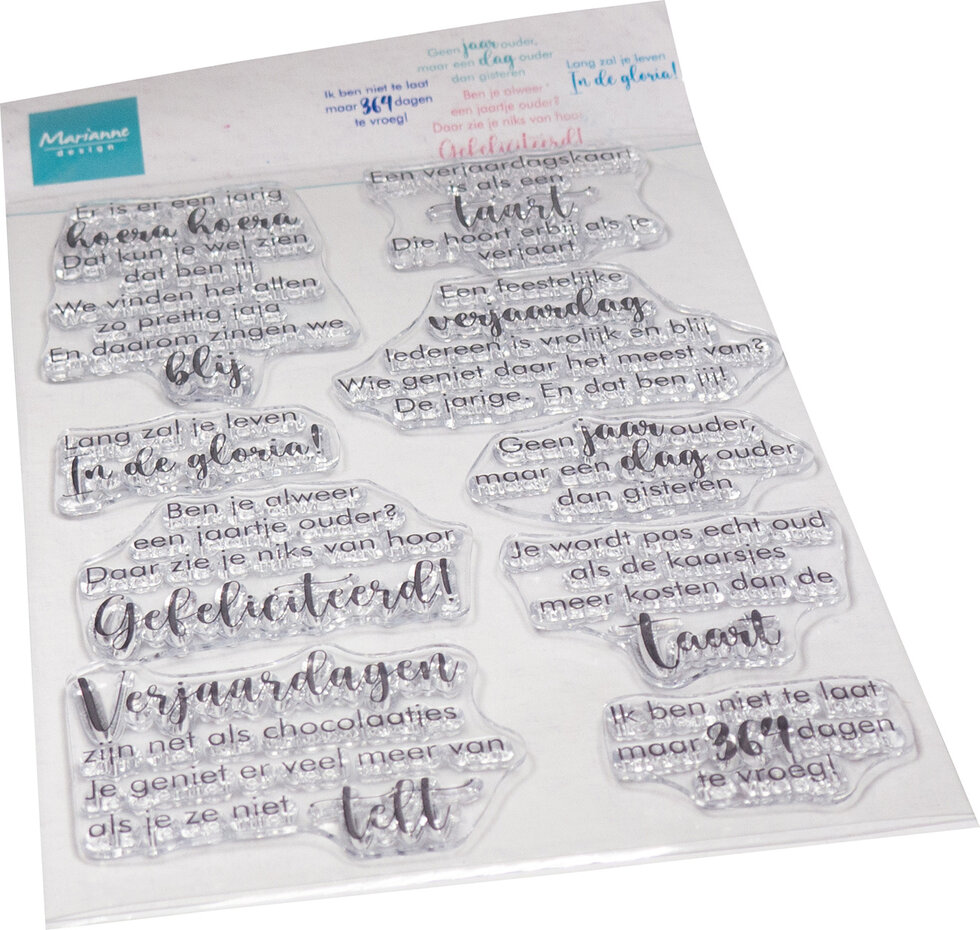 Marianne
design
Ik ben niet te laat
maar 364 dagen
te vroeg!
Geen jaar ouder,
maar een dag ouder
dan gisteren
Ben je alweer
een jaartje ouder?
Daar zie je niks van hoor
Gefeliciteerd!
Lang zal je leven
In de gloria!
Er is er een jarig
hoera hoera
Dat kun je wel zien
dat ben jij
We vinden het allen
zo prettig jaja
En daarom zingen we
blij
Een verjaardagskaart
is als een
taart
Die hoort erbij als je
verjaart
Een feestelijke
verjaardag
Iedereen is vrolijk en blij
Wie geniet daar het meest van?
De jarige. En dat ben jij!
Lang zal je leven
In de gloria!
Geen jaar ouder,
maar een dag ouder
dan gisteren
Ben je alweer
een jaartje ouder?
Daar zie je niks van hoor
Gefeliciteerd!
Je wordt pas echt oud
als de kaarsjes
meer kosten dan de
taart
Verjaardagen
zijn net als chocolaatjes
Je geniet er veel meer van
als je ze niet telt
Ik ben niet te laat
maar 364 dagen
te vroeg!